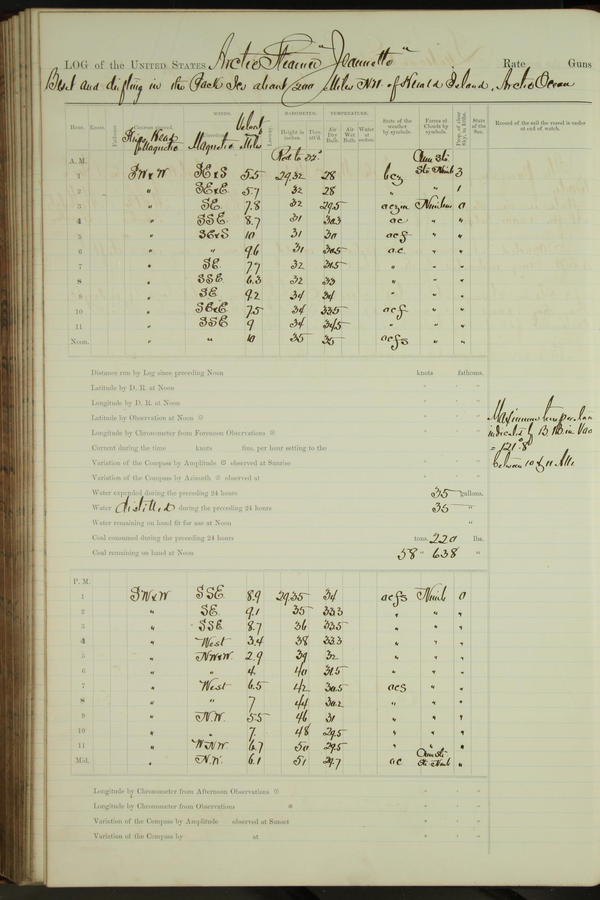 LOG of the UNITED STATES Arctic Steamer "Jeannette" Rate Guns
Beset and drifting in the Pack Ice about 200 Miles NW. of Herald Island, Arctic Ocean
WINDS. BAROMETER. TEMPERATURE.
Hour. Knots. Fathoms. Courses steered. Direction. Velocity Miles Leeway. Height in inches. Ther. att'd. Air Dry Bulb. Air Wet Bulb. Water at surface. State of the weather by symbols. Forms of Clouds by symbols. Prop. of clear Sky, in 10ths. State of the Sea. Record of the sail the vessel is under at end of watch.
Ship's Head p. Magnetic Magnetic
A. M. Red to 32° Cum Sti
1 SW x W SE x S 5.5 29.32 28 bcz Sti Nimb 3
2 " SE x E 5.7 32 28 " " 1
3 " SE. 7.8 32 29.5 Nimbus 0
4 " SSE. 8.7 31 30.3 ac " "
5 " SE x S 10 31 30 acf " "
6 " " 9.6 31 30.5 a.c. " "
7 " SE. 7.7 32 31.5 " " "
8 " SSE. 6.3 32 33 " " "
9 " SE 9.2 34 34 " " "
10 " SE x E 7.5 34 33.5 acf " "
11 " SSE 9 34 34.5 " " "
Noon. " " 10 35 35 acfs " "
Distance run by Log since preceding Noon knots fathoms.
Latitude by D. R. at Noon
Longitude by D. R. at Noon
Latitude by Observation at Noon
Longitude by Chronometer from Forenoon Observations
Current during the time knots fms. per hour setting to the
Variation of the Compass by Amplitude observed at Sunrise
Variation of the Compass by Azimuth observed at
Maximum temper.
indicated by B. B. in Vac
= 121.8°
between 10 & 11 AM.
Water expended during the preceding 24 hours 35 gallons.
Water distilled during the preceding 24 hours 35 "
Water remaining on hand fit for use at Noon "
Coal consumed during the preceding 24 hours tons, 220 lbs.
Coal remaining on hand at Noon 58 " 638 "
P. M.
1 SW x W SSE 8.9 29.35 34 acfs Nimb 0
2 " SE. 9.1 35 33.3 " " "
3 " SSE. 8.7 36 33.5 " " "
4 " West 3.4 38 33.3 " " "
5 " NW x W. 2.9 39 32 " " "
6 " " 4. 40 31.5 " " "
7 " West 6.5 42 30.5 acs " "
8 " " 7 44 30.2 " " "
9 " N.W. 5.5 46 31 " " "
10 " " 7. 48 29.5 " " "
11 " WNW. 6.7 50 29.5 " " "
Cum Sti
Mid. " N.W. 6.1 51 29.7 ac Sti Nimb "
Longitude by Chronometer from Afternoon Observations
Longitude by Chronometer from Observations
Variation of the Compass by Amplitude observed at Sunset
Variation of the Compass by at